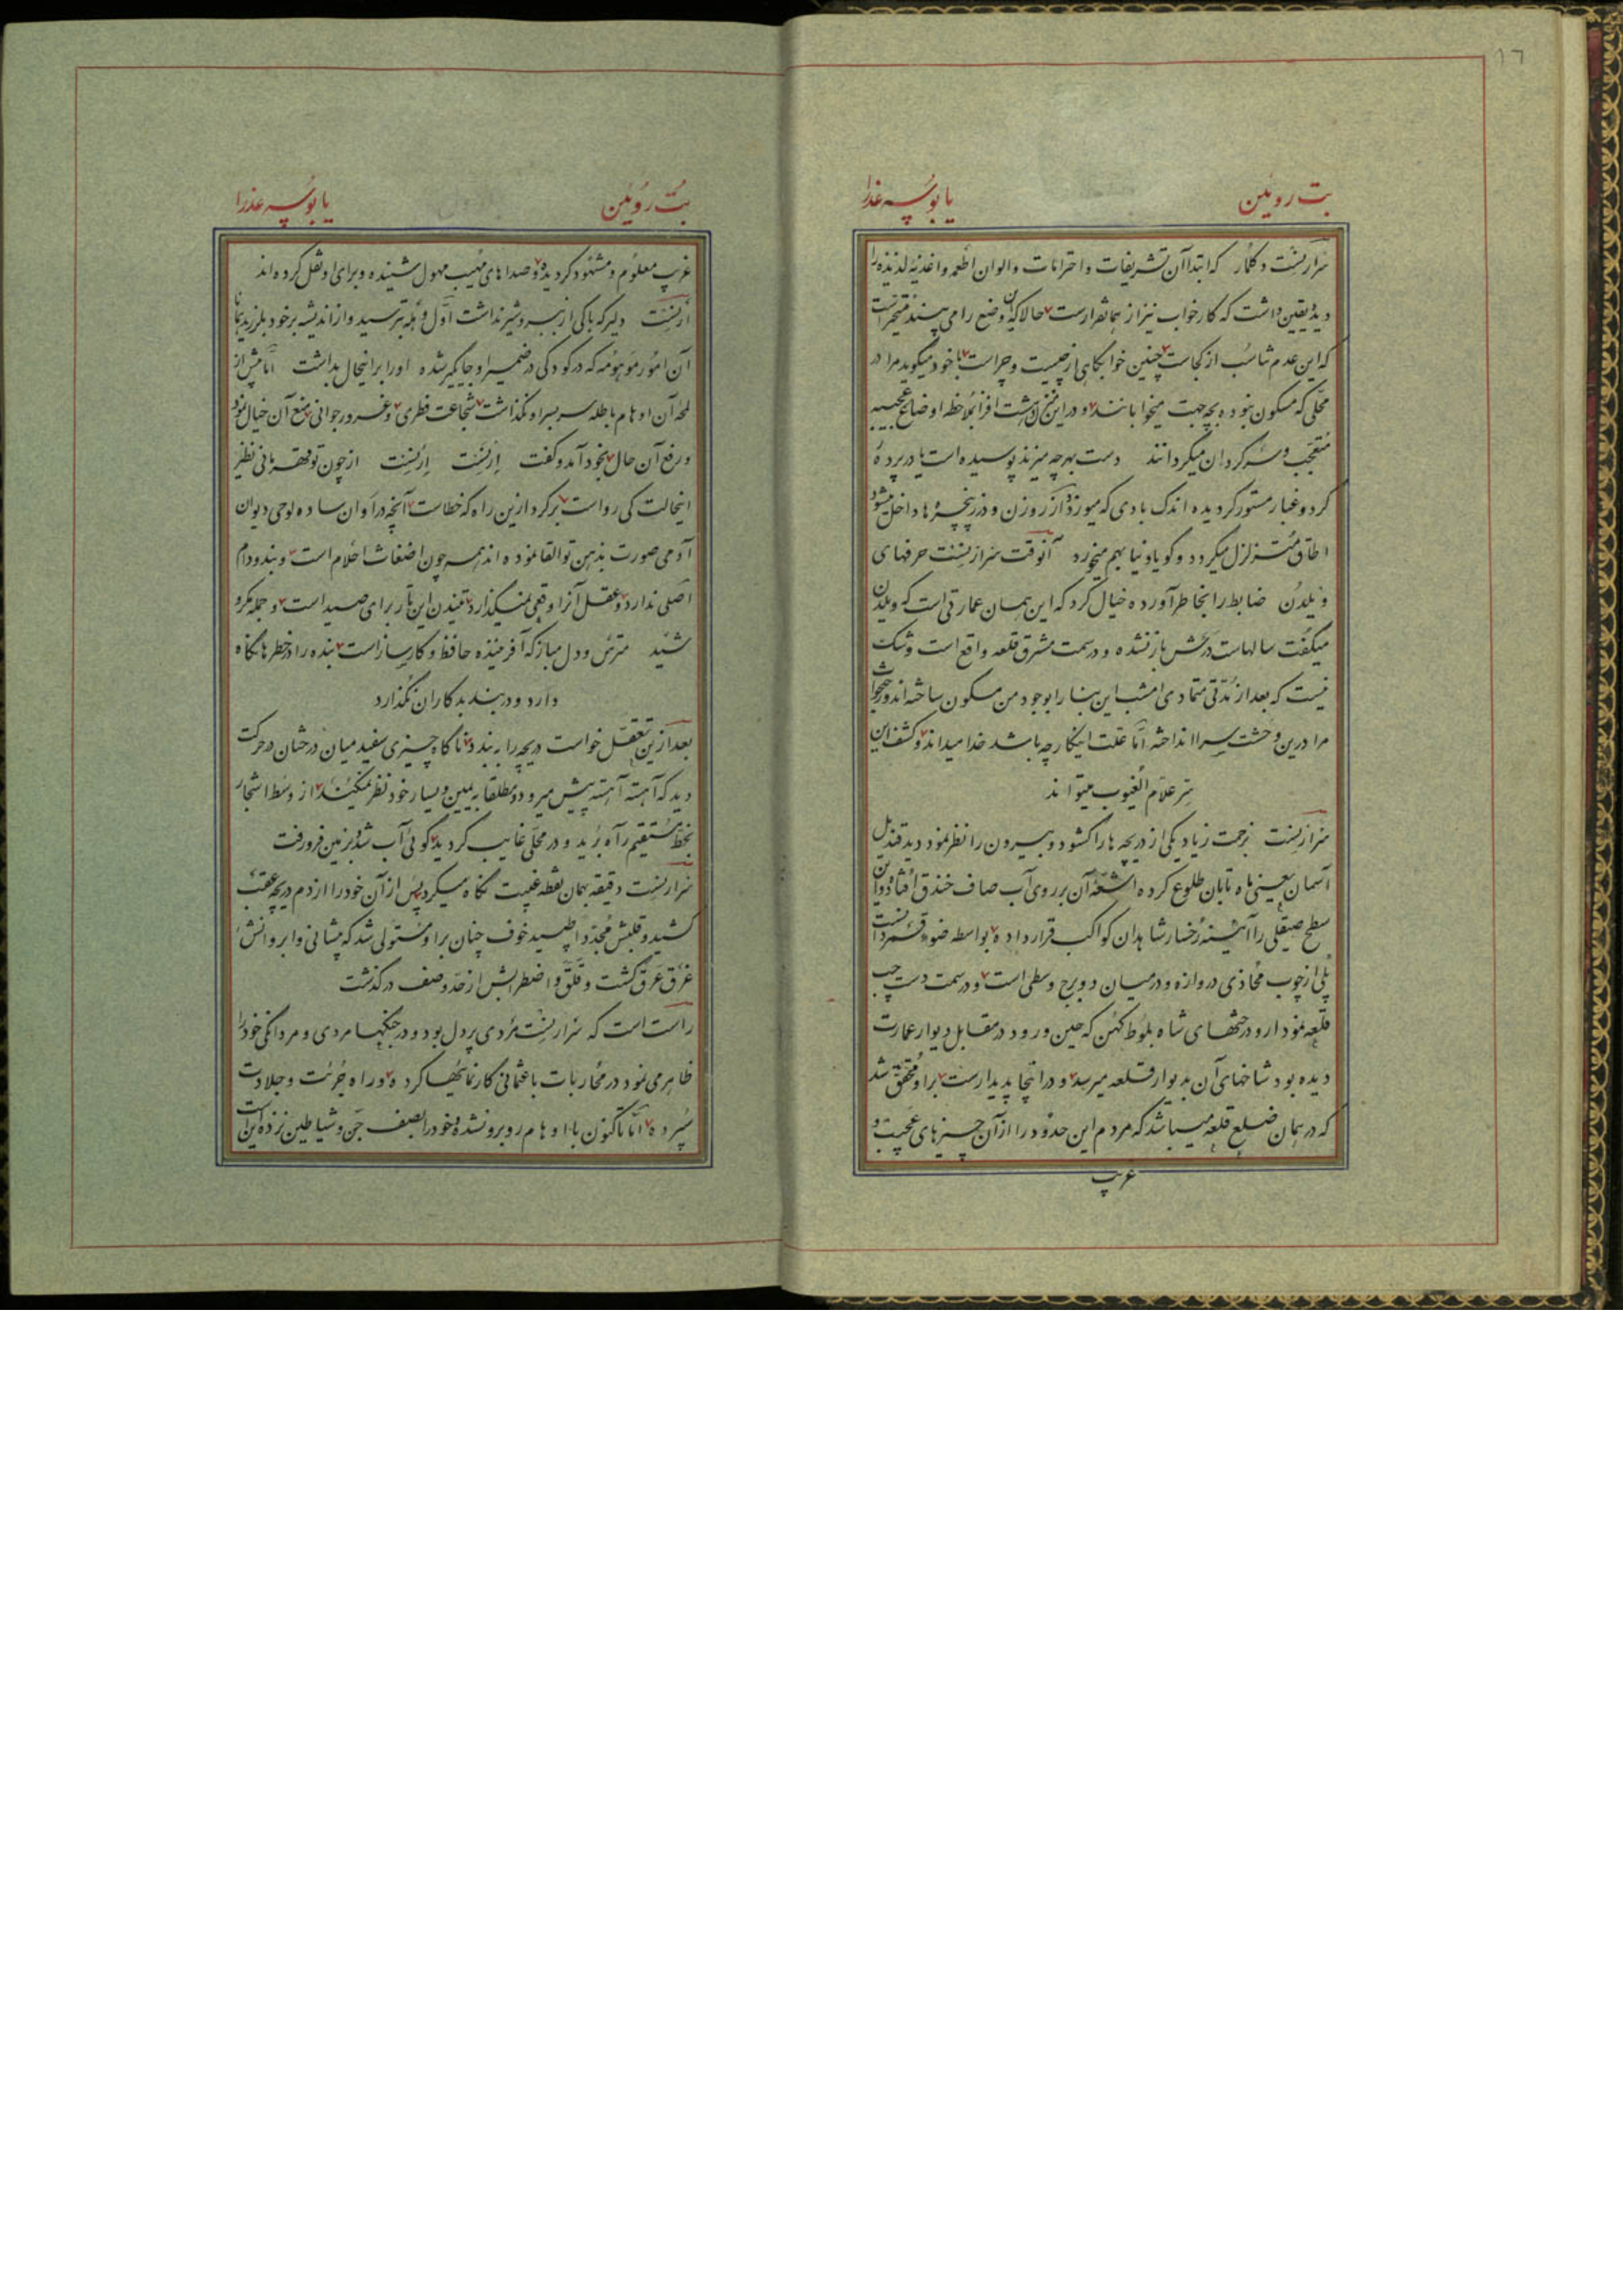 ١٦
بت روئین
یا بوسه عذرا
سرارنست دکلمار که ابتدا آن تشریفات و احترامات و الوان اطعمه و اغذیه لذیذه را
دید یقین داشت که کار خواب نیز از همانقرارست حالا که این وضع را می بیند متحیر است
که این عدم تناسب از کجاست چنین خوابگاهی از چیست و چراست با خود میگوید مرا در
محلی که مسکون نبوده بچه جهت میخوابانند و در این منزل وحشت افزا بملاحظه اوضاع عجیبه
متعجب و سرگردان میگردانند دست بهر چه میزند پوسیده است یا در پرده
گرد و غبار مستور گردیده اندک بادی که میوزد از روزن و درز پنجره ها داخل میشود
اطاق متزلزل میگردد و گویا دنیا بهم میخورد آنوقت سرارنست حرفهای
ویلدن ضابط را بخاطر آورده خیال کرد که این همان عمارتی است که ویلدن
میگفت سالهاست درش باز نشده و در سمت مشرق قلعه واقع است و شک
نیست که بعد از مدتی متمادی امشب این بنا را بوجود من مسکون ساخته اند و رختخواب
مرا درین وحشت سرا انداخته اما علت اینکار چه باشد خدا میداند و کشف این
سر علام الغیوب میتواند
سرارنست بزحمت زیاد یکی از دریچه ها را گشود و بیرون را نظر نمود دید قندیل
آسمان یعنی ماه تابان طلوع کرده اشعه آن بر روی آب صاف خندق افتاده و این
سطح صیقلی را آئینه رخسار شاهدان کواکب قرار داده بواسطه ضوء قمر دانست
پلی از چوب محاذی دروازه و در میان دو برج وسطی است و در سمت دست چپ
قلعه نمودار و درختهای شاه بلوط کهن که حین ورود در مقابل دیوار عمارت
دیده بود شاخهای آن بدیوار قلعه میرسد و در اینجا پدیدارست بر او محقق شد
که در همان ضلع قلعه میباشد که مردم این حدود را از آن چیزهای عجیب و
غریب
بت روئین
یا بوسه عذرا
غریب معلوم و مشهود گردیده و صداهای مهیب مهول شنیده و برای او نقل کرده اند
ارنست دلیر که باکی از ببر و شیر نداشت اول وهله بترسید و از اندیشه بر خود بلرزید همانا
آن امور موهومه که در کودکی در ضمیر او جایگیر شده او را بر اینحال بداشت اما پیش از
لمحه آن اوهام باطله سر بسر او نگذاشت شجاعت فطری و غرور جوانی منع آن خیال نمود
و رفع آن حال بخود آمد و گفت ارنست ارنست از چون تو قهرمانی نظیر
اینحالت کی رواست برگرد ازین راه که خطاست آنچه در اوان ساده لوحی دیوان
آدمی صورت بذهن تو القا نموده اند همه چون اضغاث احلام است و بند و دام
اصلی ندارد و عقل آنرا وقعی نمیگذارد تنیدن این تار برای صید است و جمله مکر و
شید مترس و دل مباز که آفریننده حافظ و کارساز است بنده را در خطرها نگاه
دارد و در بند بدکاران نگذارد
بعد ازین تعقل خواست دریچه را ببندد ناگاه چیزی سفید میان درختان در حرکت
دید که آهسته آهسته پیش میرود و مطلقا به یمین و یسار خود نظر نمیکند از وسط اشجار
بخط مستقیم راه برید و در محلی غایب گردید گوئی آب شد و بزمین فرو رفت
سرارنست دقیقه بهمان نقطه غیبت نگاه میکرد پس از آن خود را از دم دریچه عقب
کشید و قلبش مجددا طپید خوف چنان بر او مستولی شد که پیشانی و ابروانش
غرق عرق گشت و قلق و اضطرابش از حد وصف در گذشت
راست است که سرارنست مردی پر دل بود و در جنگها مردی و مردانگی خود را
ظاهر می نمود در محاربات با عثمانی کار نمائیها کرده و راه جرئت و جلادت
سپرده اما تاکنون با اوهام روبرو نشده و خود را بصف جن و شیاطین نزده این است